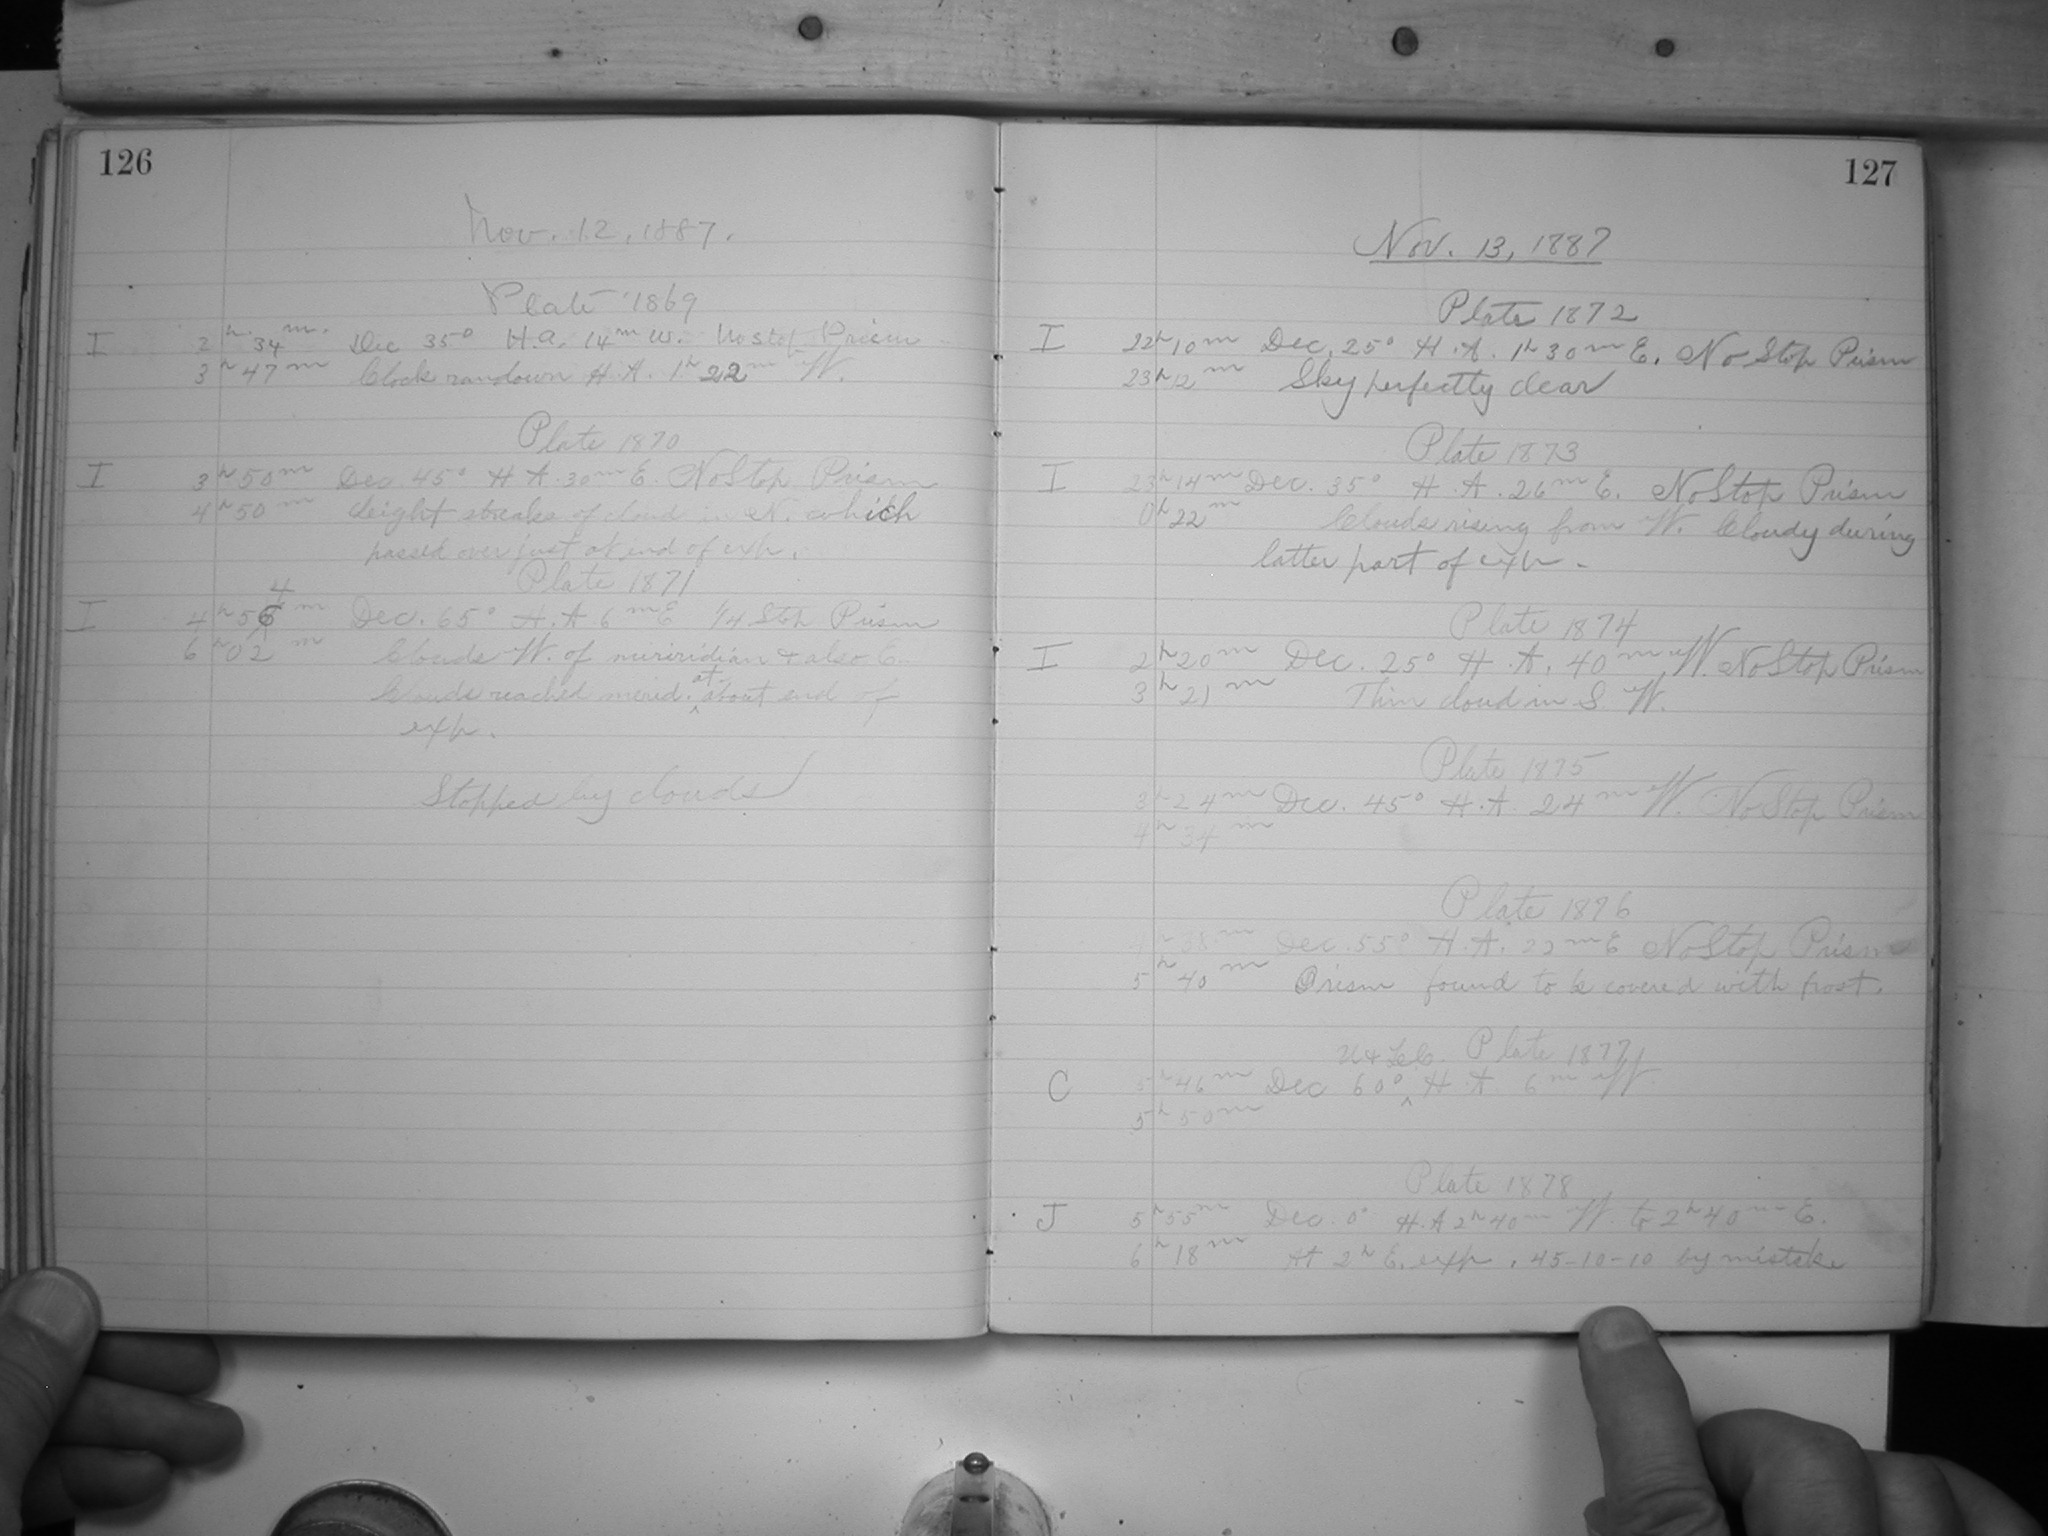 126
Nov. 12, 1887.
Plate 1869
I 2h 34m. Dec 35° H.A. 14m W. No stop Prism
3h 47m Clock run down H.A. 1h 22m W.
Plate 1870
I 3h 50m Dec. 45° H.A. 30m E. No Stop Prism
4h 50m Slight streaks of cloud in N. which
passed over just at end of exp.
Plate 1871
4
I 4h 56m Dec. 65° H.A. 6m E 1/4 Stop Prism
6h 02m Clouds W. of meriridian & also E.
Clouds reached merid. at about end of
exp.
Stopped by clouds
127
Nov. 13, 1887
Plate 1872
I 22h 10m Dec. 25° H.A. 1h 30m E. No Stop Prism
23h 12m Sky perfectly clear
Plate 1873
I 23h 14m Dec. 35° H.A. 26m E. No Stop Prism
0h 22m Clouds rising from W. Cloudy during
latter part of exp.
Plate 1874
I 2h 20m Dec. 25° H.A. 40m W. No Stop Prism
3h 21m Thin cloud in S.W.
Plate 1875
3h 24m Dec. 45° H.A. 24m W. No Stop Prism
4h 34m
Plate 1876
38m Dec. 55° H.A. m E No Stop Prism
5h 40m Prism found to be covered with frost.
Plate 1877
C 5h 46m Dec 60° H.A. 6m W.
5h 50m
Plate 1878
J 5h 55m Dec. 0° H.A 2h 40m W. to 2h 40m E.
6h 18m At 2h E. exp. 45-10-10 by mistake